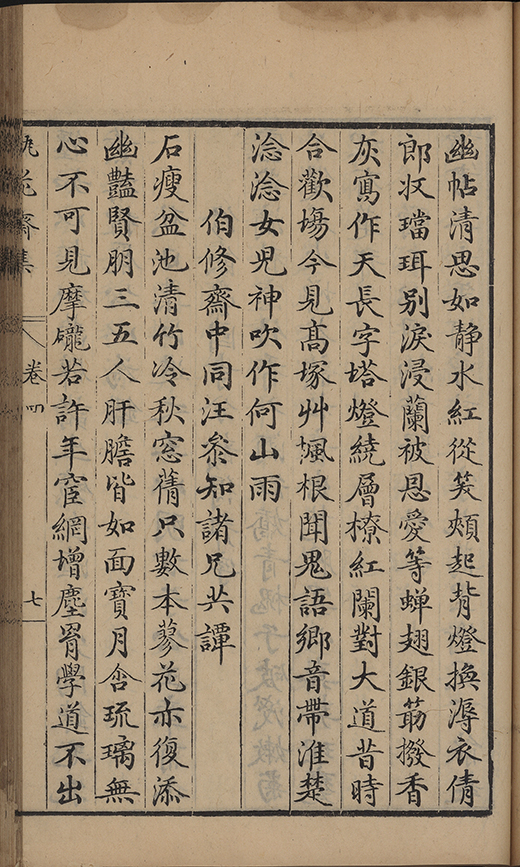 幽帖清思如静水紅從笑頰起背燈換溽衣倩
郎㧞璫珥别淚浸蘭被恩愛等蝉翅銀筯撥香
灰寫作天長字塔燈繞層橑紅闌對大道昔時
合歡塲今見髙塚艸颯根聞鬼語鄉音帶淮楚
淰淰女児神吹作何山雨
伯修齋中同汪叅知諸兄共譚
石瘦盆池清竹冷秋窓蒨只數本蓼花亦復添
幽豔賢朋三五人肝膽皆如面寳月含琉璃無
心不可見摩礲若許年宦網增塵罥學道不出
卷四
七